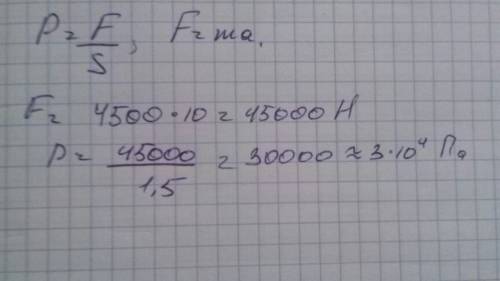 P = F/S, F = ma.
F = 4500·10 = 45000 Н
P = 45000/1,5 = 30000 ≈ 3·10⁴ Па